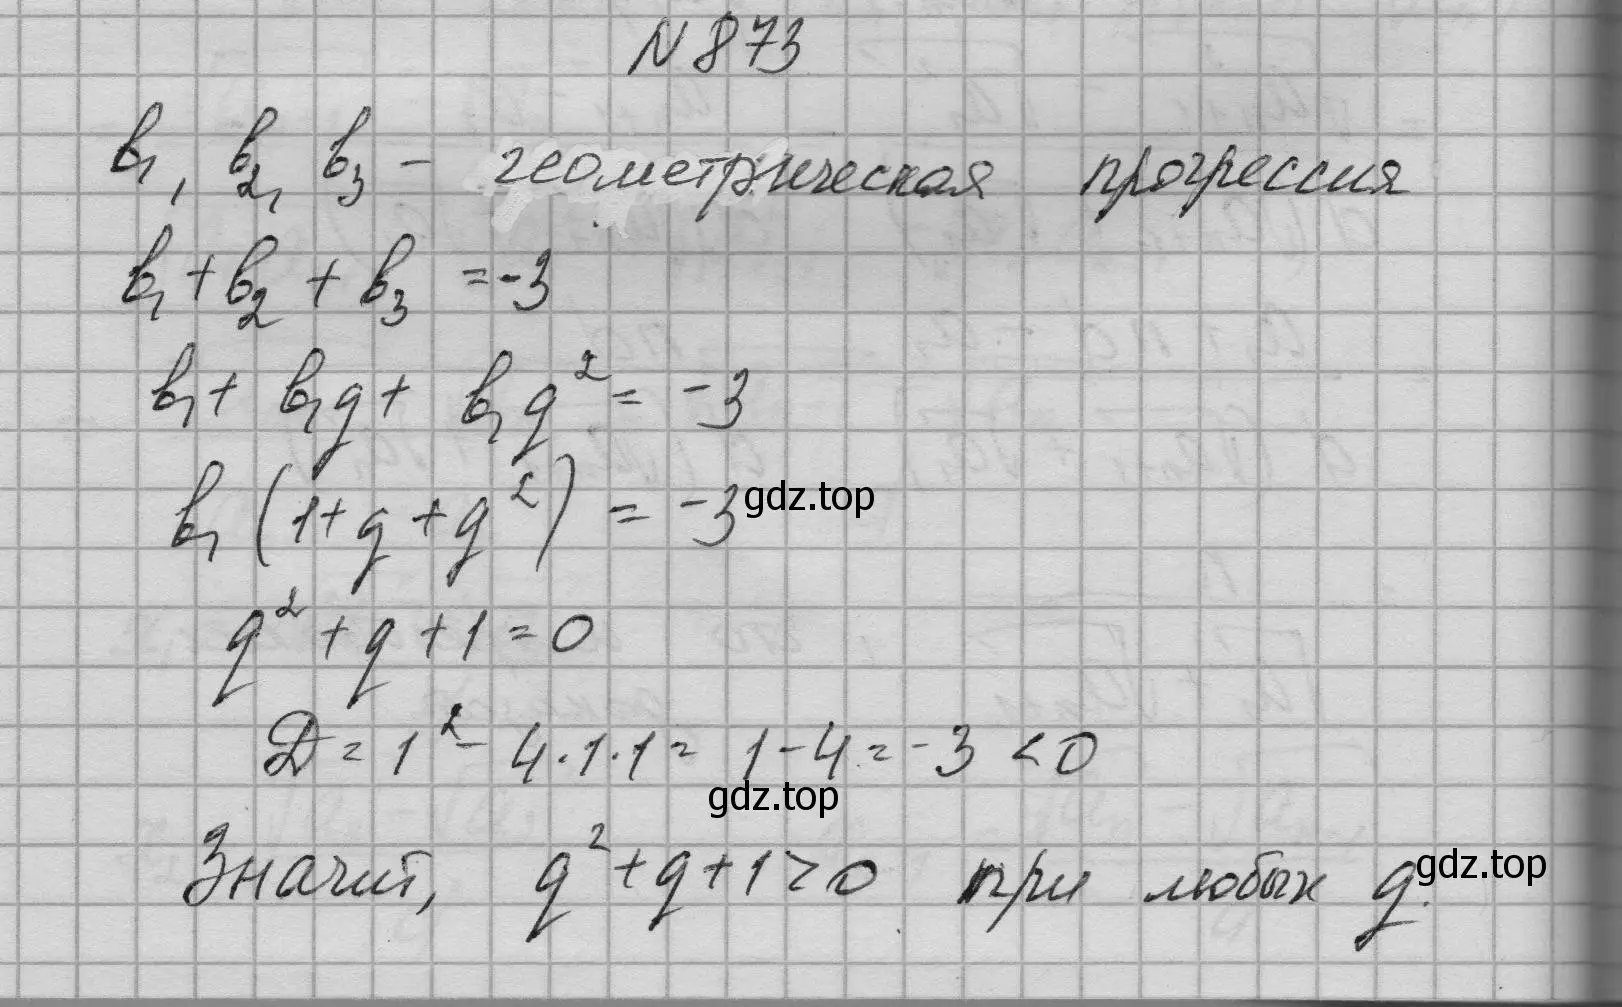 N 873
b₁, b₂, b₃ - геометрическая прогрессия
b₁ + b₂ + b₃ = -3
b₁ + b₁q + b₁q² = -3
b₁(1 + q + q²) = -3 gdz.top
q² + q + 1 = 0
D = 1² - 4·1·1 = 1 - 4 = -3 < 0
gdz.top
Значит, q² + q + 1 > 0 при любых q. gdz.top